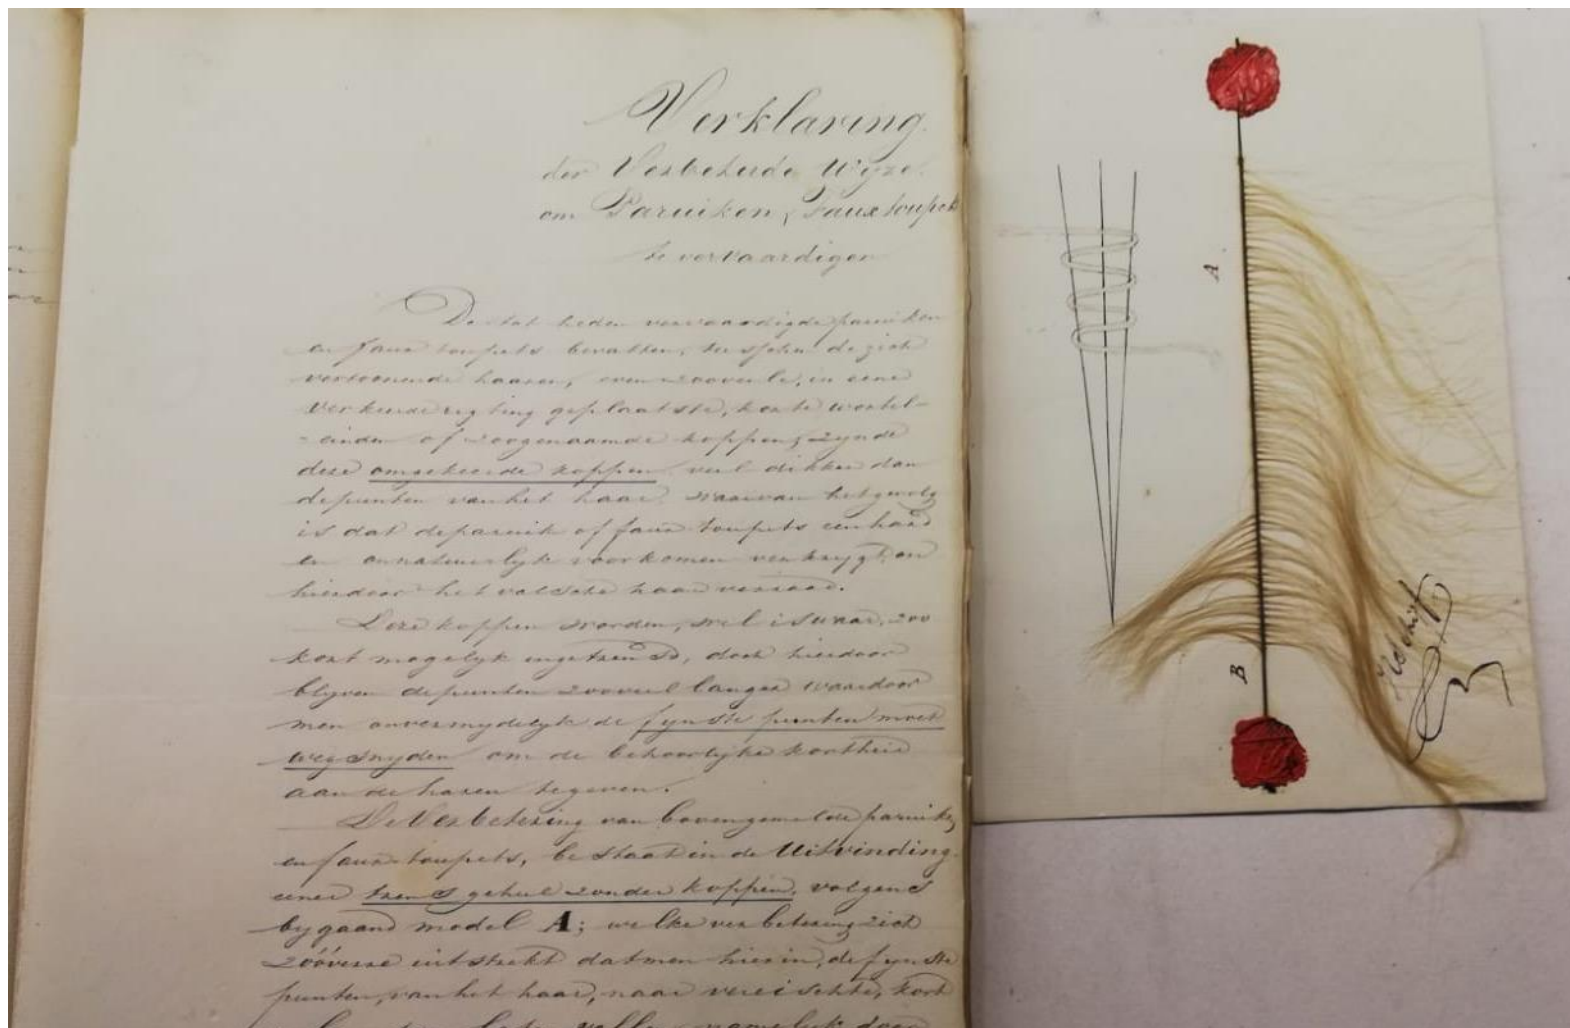 Verklaring
der Verbeterde Wyze
om Paruiken, Fauxtoupets
te vervaardigen
De tot heden vervaardigde paruiken
en faux toupets bevatten, de zich
vertoonende haaren, even zooveele, in eene
verkeerde rigting geplaatste, korte wortel-
einden of zoogenaamde koppen, zynde
deze omgekeerde koppen veel dikker dan
de punten van het haar, waarvan het gevolg
is dat de paruik of faux toupets een hard
en onnatuurlyk voorkomen verkrygt, en
hierdoor het valsche haar verraad.
Deze koppen worden, wel is waar, zoo
kort mogelyk ingetrensd, doch hierdoor
blyven de punten zooveel langer waardoor
men onvermydelyk de fynste punten moet
wegsnyden om de behoorlyke kortheid
aan de haren te geven.
De Verbetering van bovengemelde paruiken
en faux-toupets, bestaat in de Uitvinding
eener trens geheel zonder koppen, volgens
bygaand model A; welke verbetering zich
zóóverre uitstrekt dat men hierin, de fynste
punten, van het haar, naar vereischte, kort
namelyk door
A
B